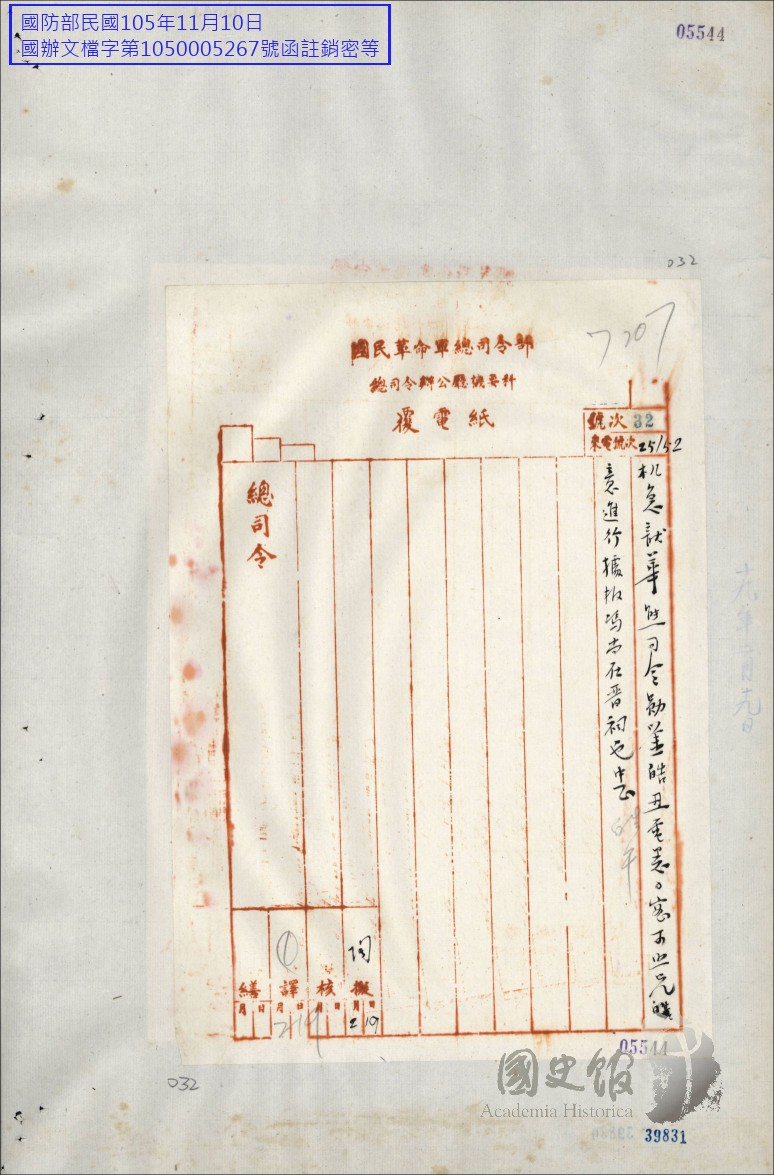 國防部民國105年11月10日
國辦文檔字第1050005267號函註銷密等
05544
032
7707
國民革命軍總司令部
總司令辦公廳機要科
覆電紙
號次 32
來電號次 25152
机急 華熊司令勛 皓丑電悉。密可照兄
意進行據報馮尚在晋祠也中正
皓午
總司令
擬 月 日 2 19
核 月 日
譯 月 日 2 19
繕 月 日
十九年二月十九日
05544
032
國史館
Academia Historica
39831